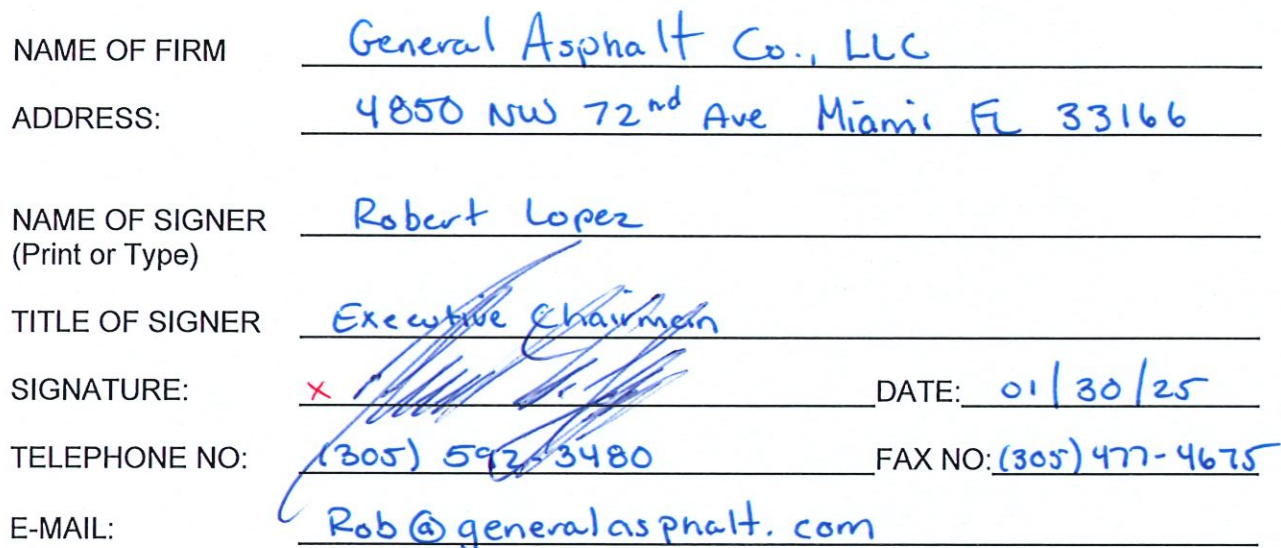 NAME OF FIRM General Asphalt Co., LLC
ADDRESS: 4850 NW 72nd Ave Miami FL 33166
NAME OF SIGNER Robert Lopez
(Print or Type)
TITLE OF SIGNER Executive Chairman
SIGNATURE: x DATE: 01/30/25
TELEPHONE NO: (305) 592-3480 FAX NO: (305) 477-4675
E-MAIL: Rob@generalasphalt.com